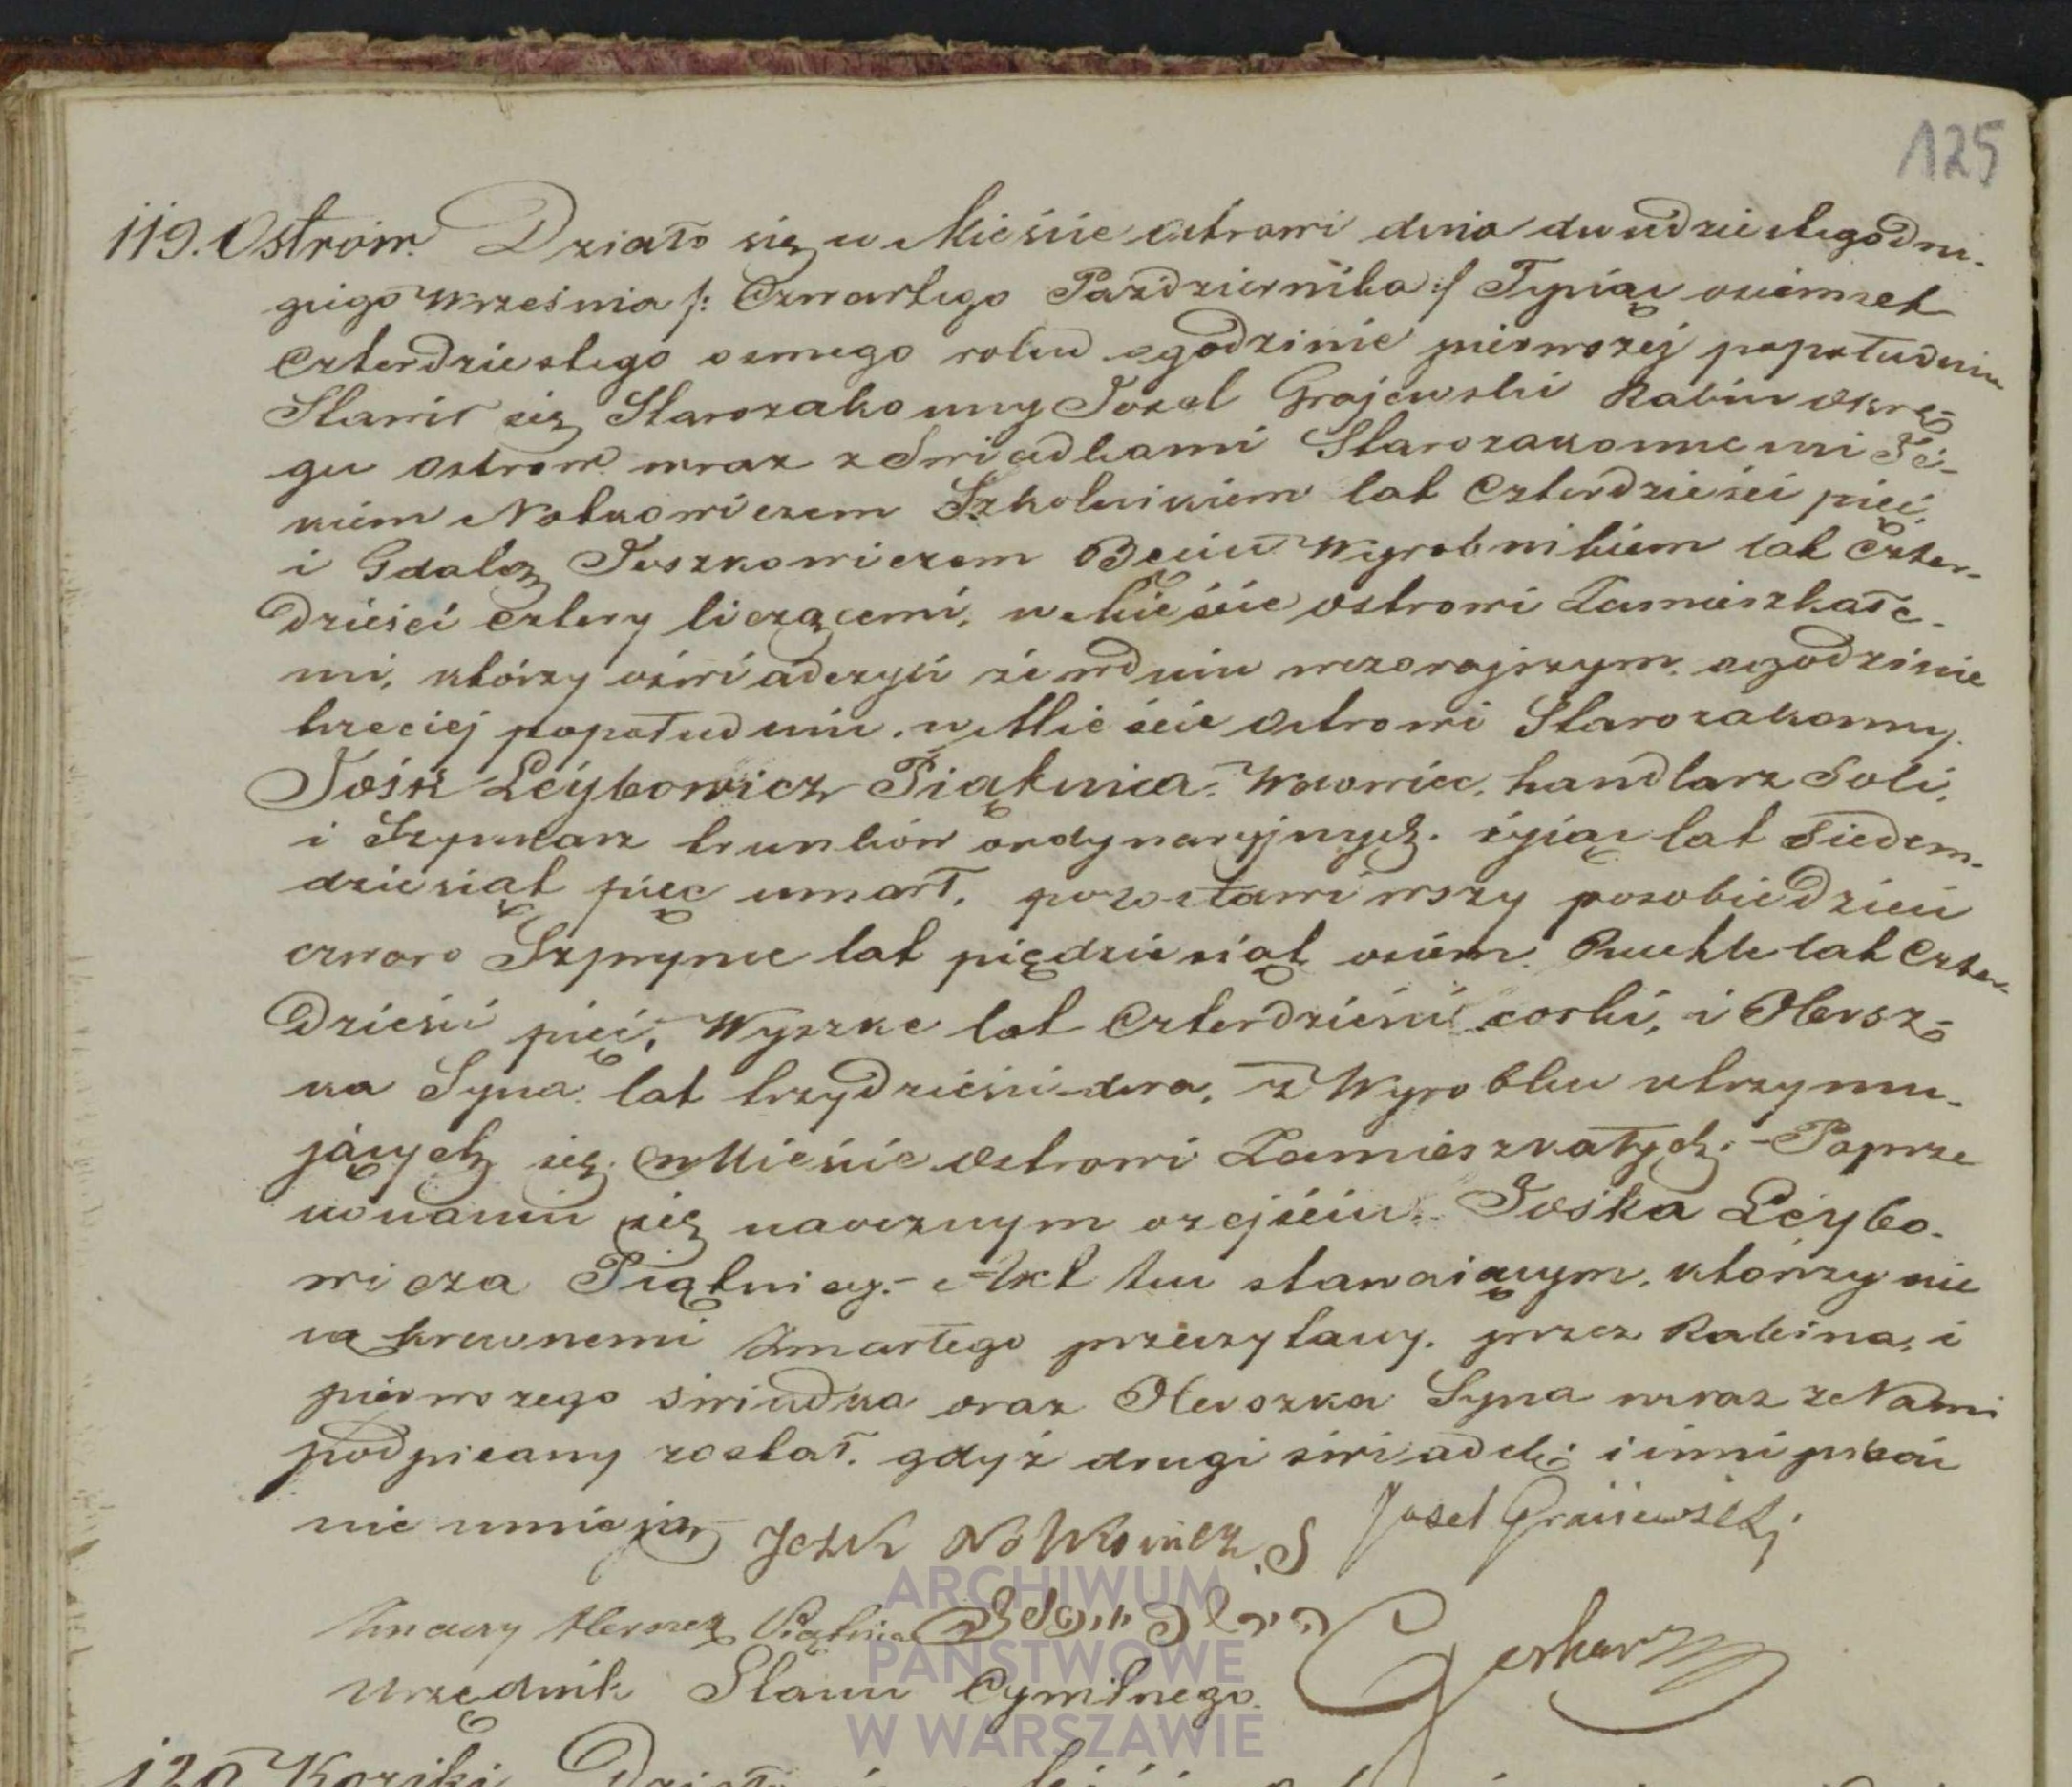 125
119. Ostrow. Działo się w Mieście Ostrowi dnia dwudziestego dru-
giego Września /: Czwartego Października :/ Tysiąc osiemset
Czterdziestego osmego roku o godzinie pierwszej popołudniu
Stawił się Starozakonny Josel Grajewski Rabin okrę-
gu Ostrow wraz z Świadkami Starozakonnemi
Notkowiczem Szkolnikiem lat Czterdzieści pięć,
i Gdalą Joszkowiczem Wyrobnikiem lat Czter-
dzieści cztery liczącemi, w Mieście Ostrowi Zamieszkałe-
mi, którzy oświadczyli że w dniu wczorajszym o godzinie
trzeciej popołudniu w Mieście Ostrowi Starozakonny
Jośk Leybowicz Piątnica Wdowiec, handlarz Soli,
i Szynkarz trunków ordynaryjnych. żyiąc lat Siedem-
dziesiąt pięc umarł, pozostawiwszy po sobie Dzieci
czworo Szprynce lat piędziesiąt osiem Ruchle lat Czter-
Dzieści pięć, Wyszke lat Czterdzieści corki, i Hersz-
ka Syna lat trzydzieści dwa, z Wyrobku utrzymu-
jących się w Mieście Ostrowi Zamieszkałych. - Poprze
konaniu się naocznym o zejściu Jośka Leybo-
wicza Piątnicy. - Akt ten stawaiącym, którzy nie
są krewnemi Zmarłego przeczytany, przez Rabina, i
pierwszego świadka oraz Herszka Syna wraz z Nami
podpisany został, gdyż drugi świadek i inni pisać
nie umieją Josel Graiiewski
Herszek Piątnica Gerhar
Urzędnik Stanu Cywilnego
120 Koziki Działo
ARCHIWUM
PAŃSTWOWE
W WARSZAWIE